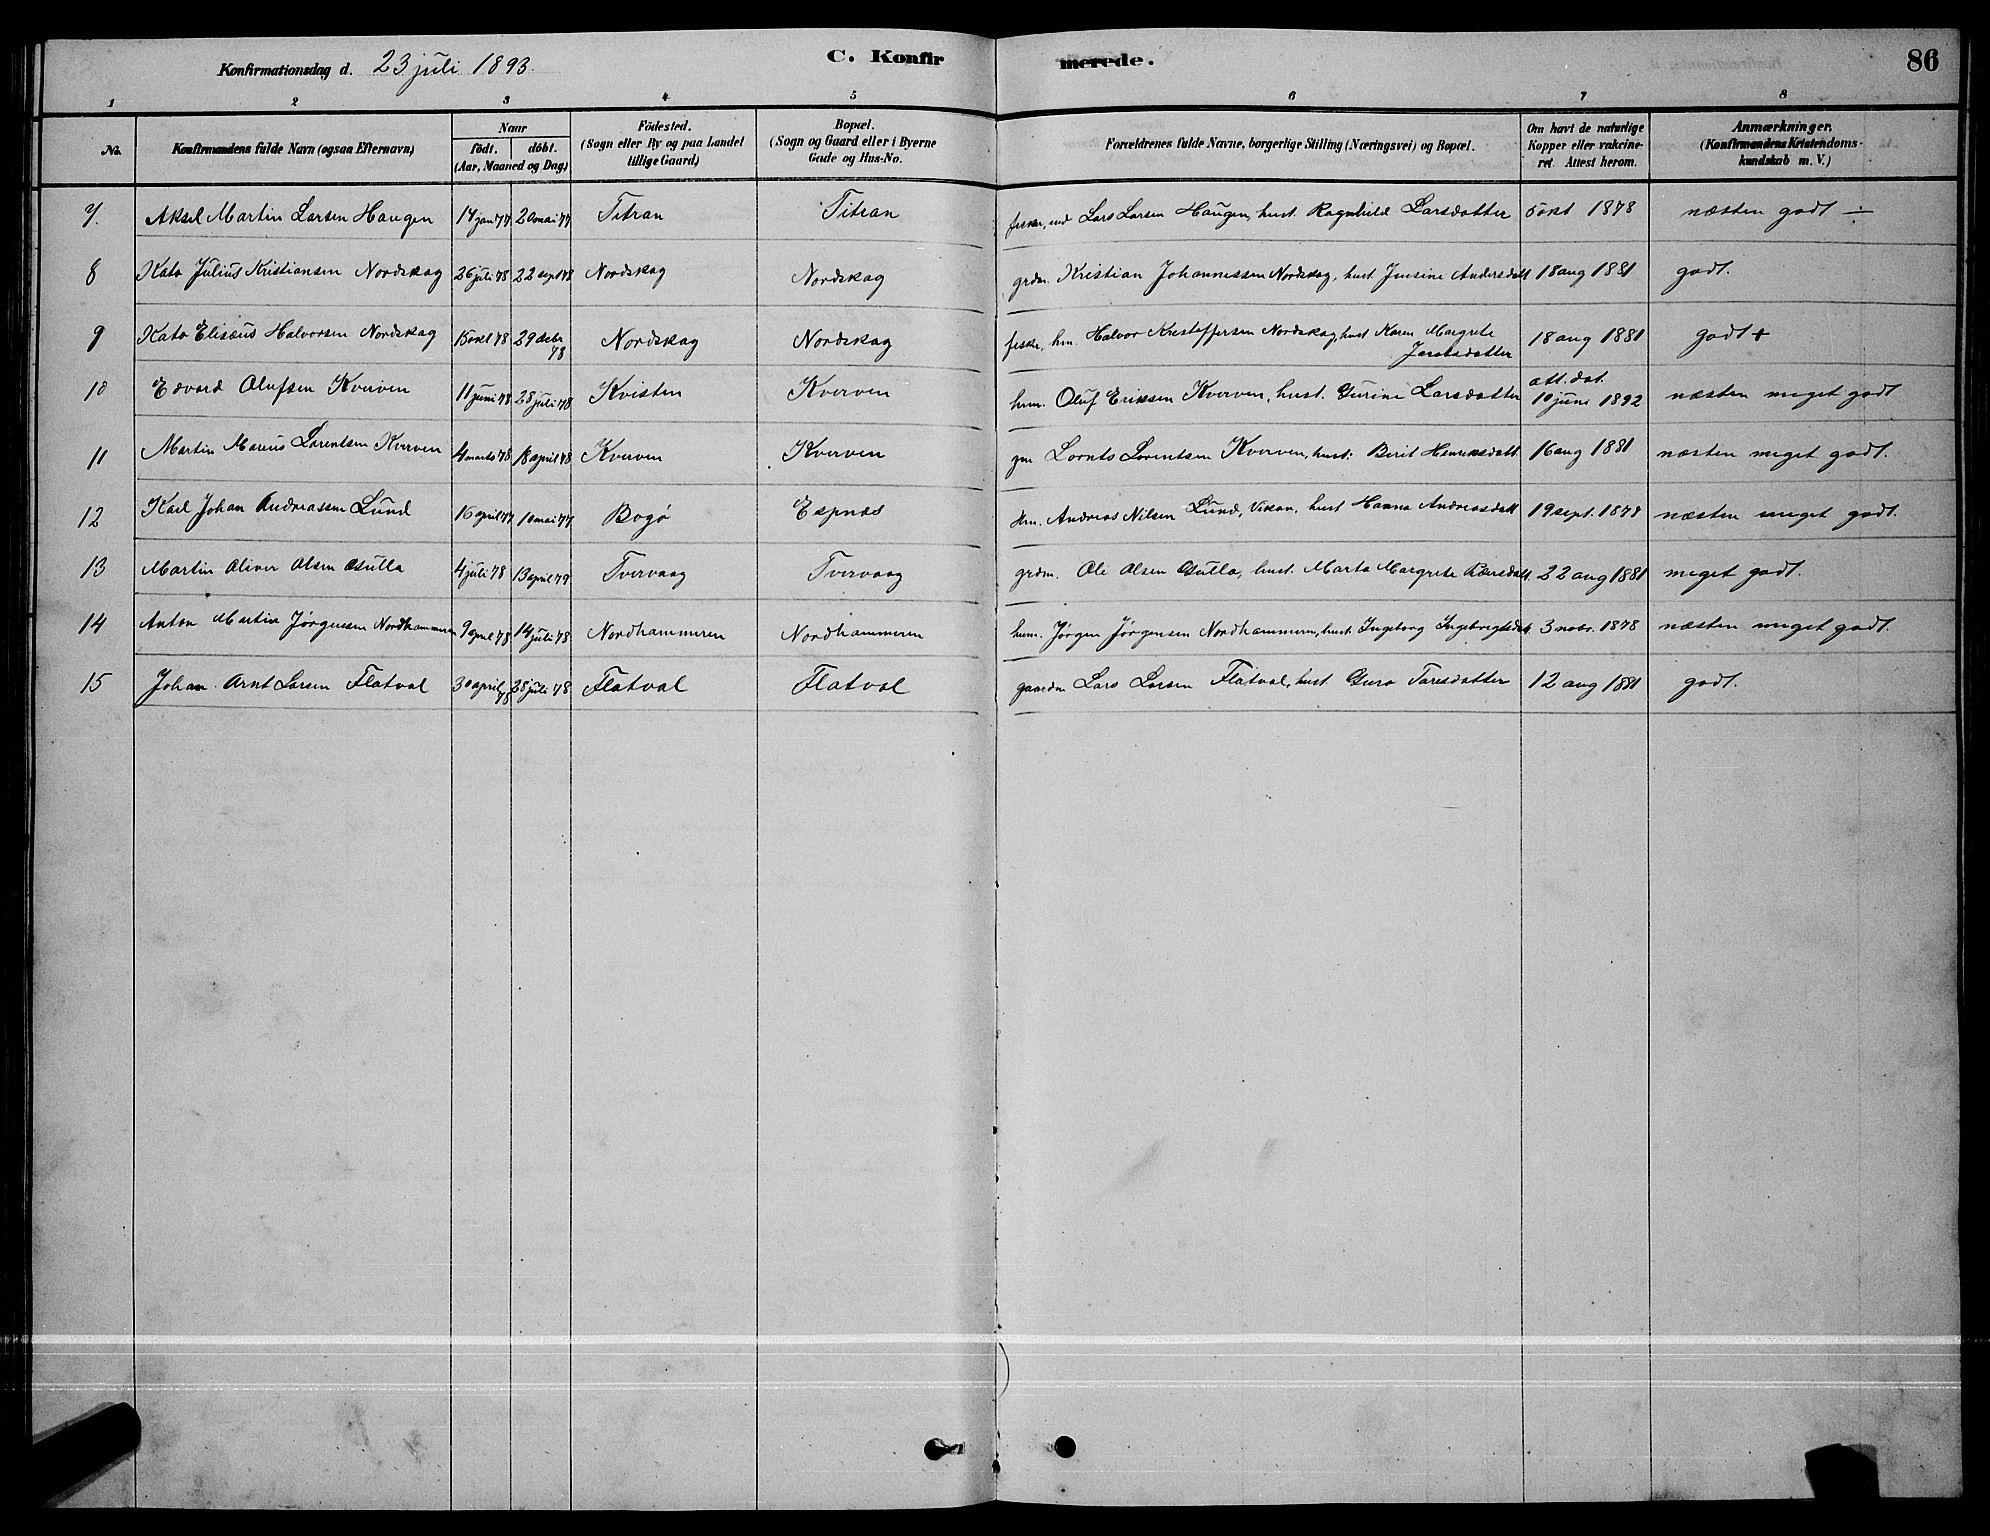 Konfirmationsdag d. 23 juli 1893.
C. Konfir merede.
86
1 2 3 4 5 6 7 8
No.
Konfirmandens fulde Navn (ogsaa Efternavn)
Naar
Födt. döbt.
(Aar, Maaned og Dag)
Födested.
(Sogn eller By og paa Landet
tillige Gaard)
Bopæl.
(Sogn og Gaard eller i Byerne
Gade og Hus-No.
Forældrenes fulde Navne, borgerlige Stilling (Næringsvei) og Bopæl.
Om havt de naturlige
Kopper eller vakcine-
ret. Attest herom.
Anmærkninger.
(Konfirmandens Kristendoms-
kundskab m. V.)
7. Aksel Martin Larsen Haugen 17 jan 77 20 mai 77 Titran Titran fisker, ind Lars Larsen Haugen, hust. Ragnhild Larsdatter 5 okt 1878 næsten godt ÷
8 Kato Julius Kristiansen Nordskag 26 juli 78 22 sept 78 Nordskag Nordskag grdm. Kristian Johannessen Nordskag, hust. Jensine Andersdatt 18 aug 1881 godt.
9 Kato Elisæus Halvorsen Nordskag 15 okt 78 29 debr 78 Nordskag Nordskag fisker, hm. Halvor Kristoffersen Nordskag, hust Karen Margrete
Jacobsdatter 18 aug 1881 godt +
10 Edvard Olufsen Kverven 11 juni 78 28 juli 78 Kvisten Kverven hum. Oluf Eriksen Kverven, hust. Gurine Larsdatter att. dat.
10 juni 1892 næsten meget godt
11 Martin Marius Lorentsen Kverven 4 marts 78 18 april 78 Kverven Kverven gm Lornts Lorentsen Kverven, hust: Berit Henriksdatt 16 aug 1881 næsten meget godt.
12 Karl Johan Andreassen Lund 16 april 77 10 mai 77 Bogø Espnæs hm. Andreas Nilsen Lund, Vikan, hust Hanna Andreasdatt 19 sept. 1878 næsten meget godt.
13 Martin Oliver Olsen Gulla 4 juli 78 13 april 79 Tvervaag Tvervaag grdm. Ole Olsen Gulla, hust. Marta Margrete Larsdatt 22 aug 1881 meget godt.
14 Anton Martin Jørgensen Nordhammeren 9 april 78 14 juli 78 Nordhammeren Nordhammeren hum. Jørgen Jørgensen Nordhammeren, hust. Ingeborg Ingebrigtsdatt 3 nobr. 1878 næsten meget godt.
15 Johan Arnt Larsen Flatval 30 april 78 28 juli 78 Flatval Flatval gaardm Lars Larsen Flatval, hust. Guro Taresdatter 12 aug 1881 godt.